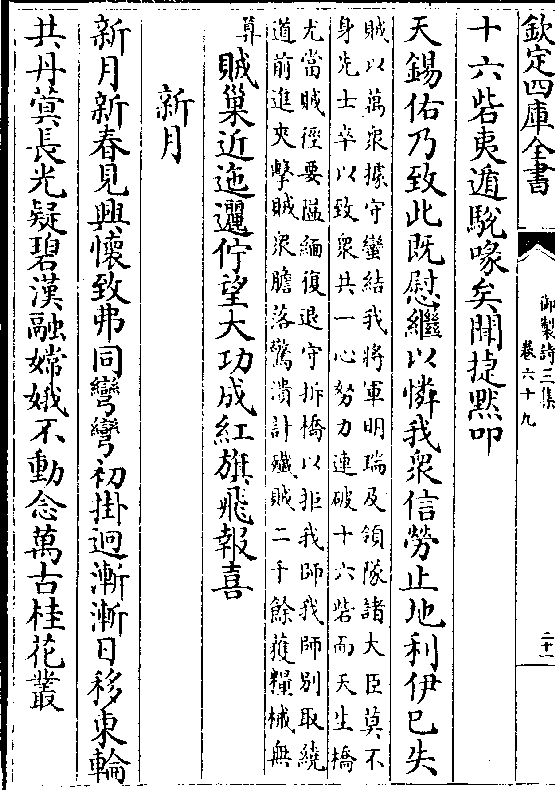 欽定四庫全書
御製詩三集
卷六十九
二十一
十六砦夷遁駾喙矣聞㨗黙叩
天錫佑乃致此既慰繼以憐我衆信勞止地利伊已失
賊以萬衆據守蠻結我將軍明瑞及領隊諸大臣莫不
身先士卒以致衆共一心努力連破十六砦而天生橋
尤當賊徑要隘緬復退守拆橋以拒我師我師别取繞
道前進夾擊賊衆膽落驚潰計殱賊二千餘獲糧械無
算
賊巢近迤邐佇望大功成紅旗飛報喜
新月
新月新春見興懷致弗同彎彎初掛迥漸漸日移東輪
共丹蓂長光凝碧漢融嫦娥不動念萬古桂花叢